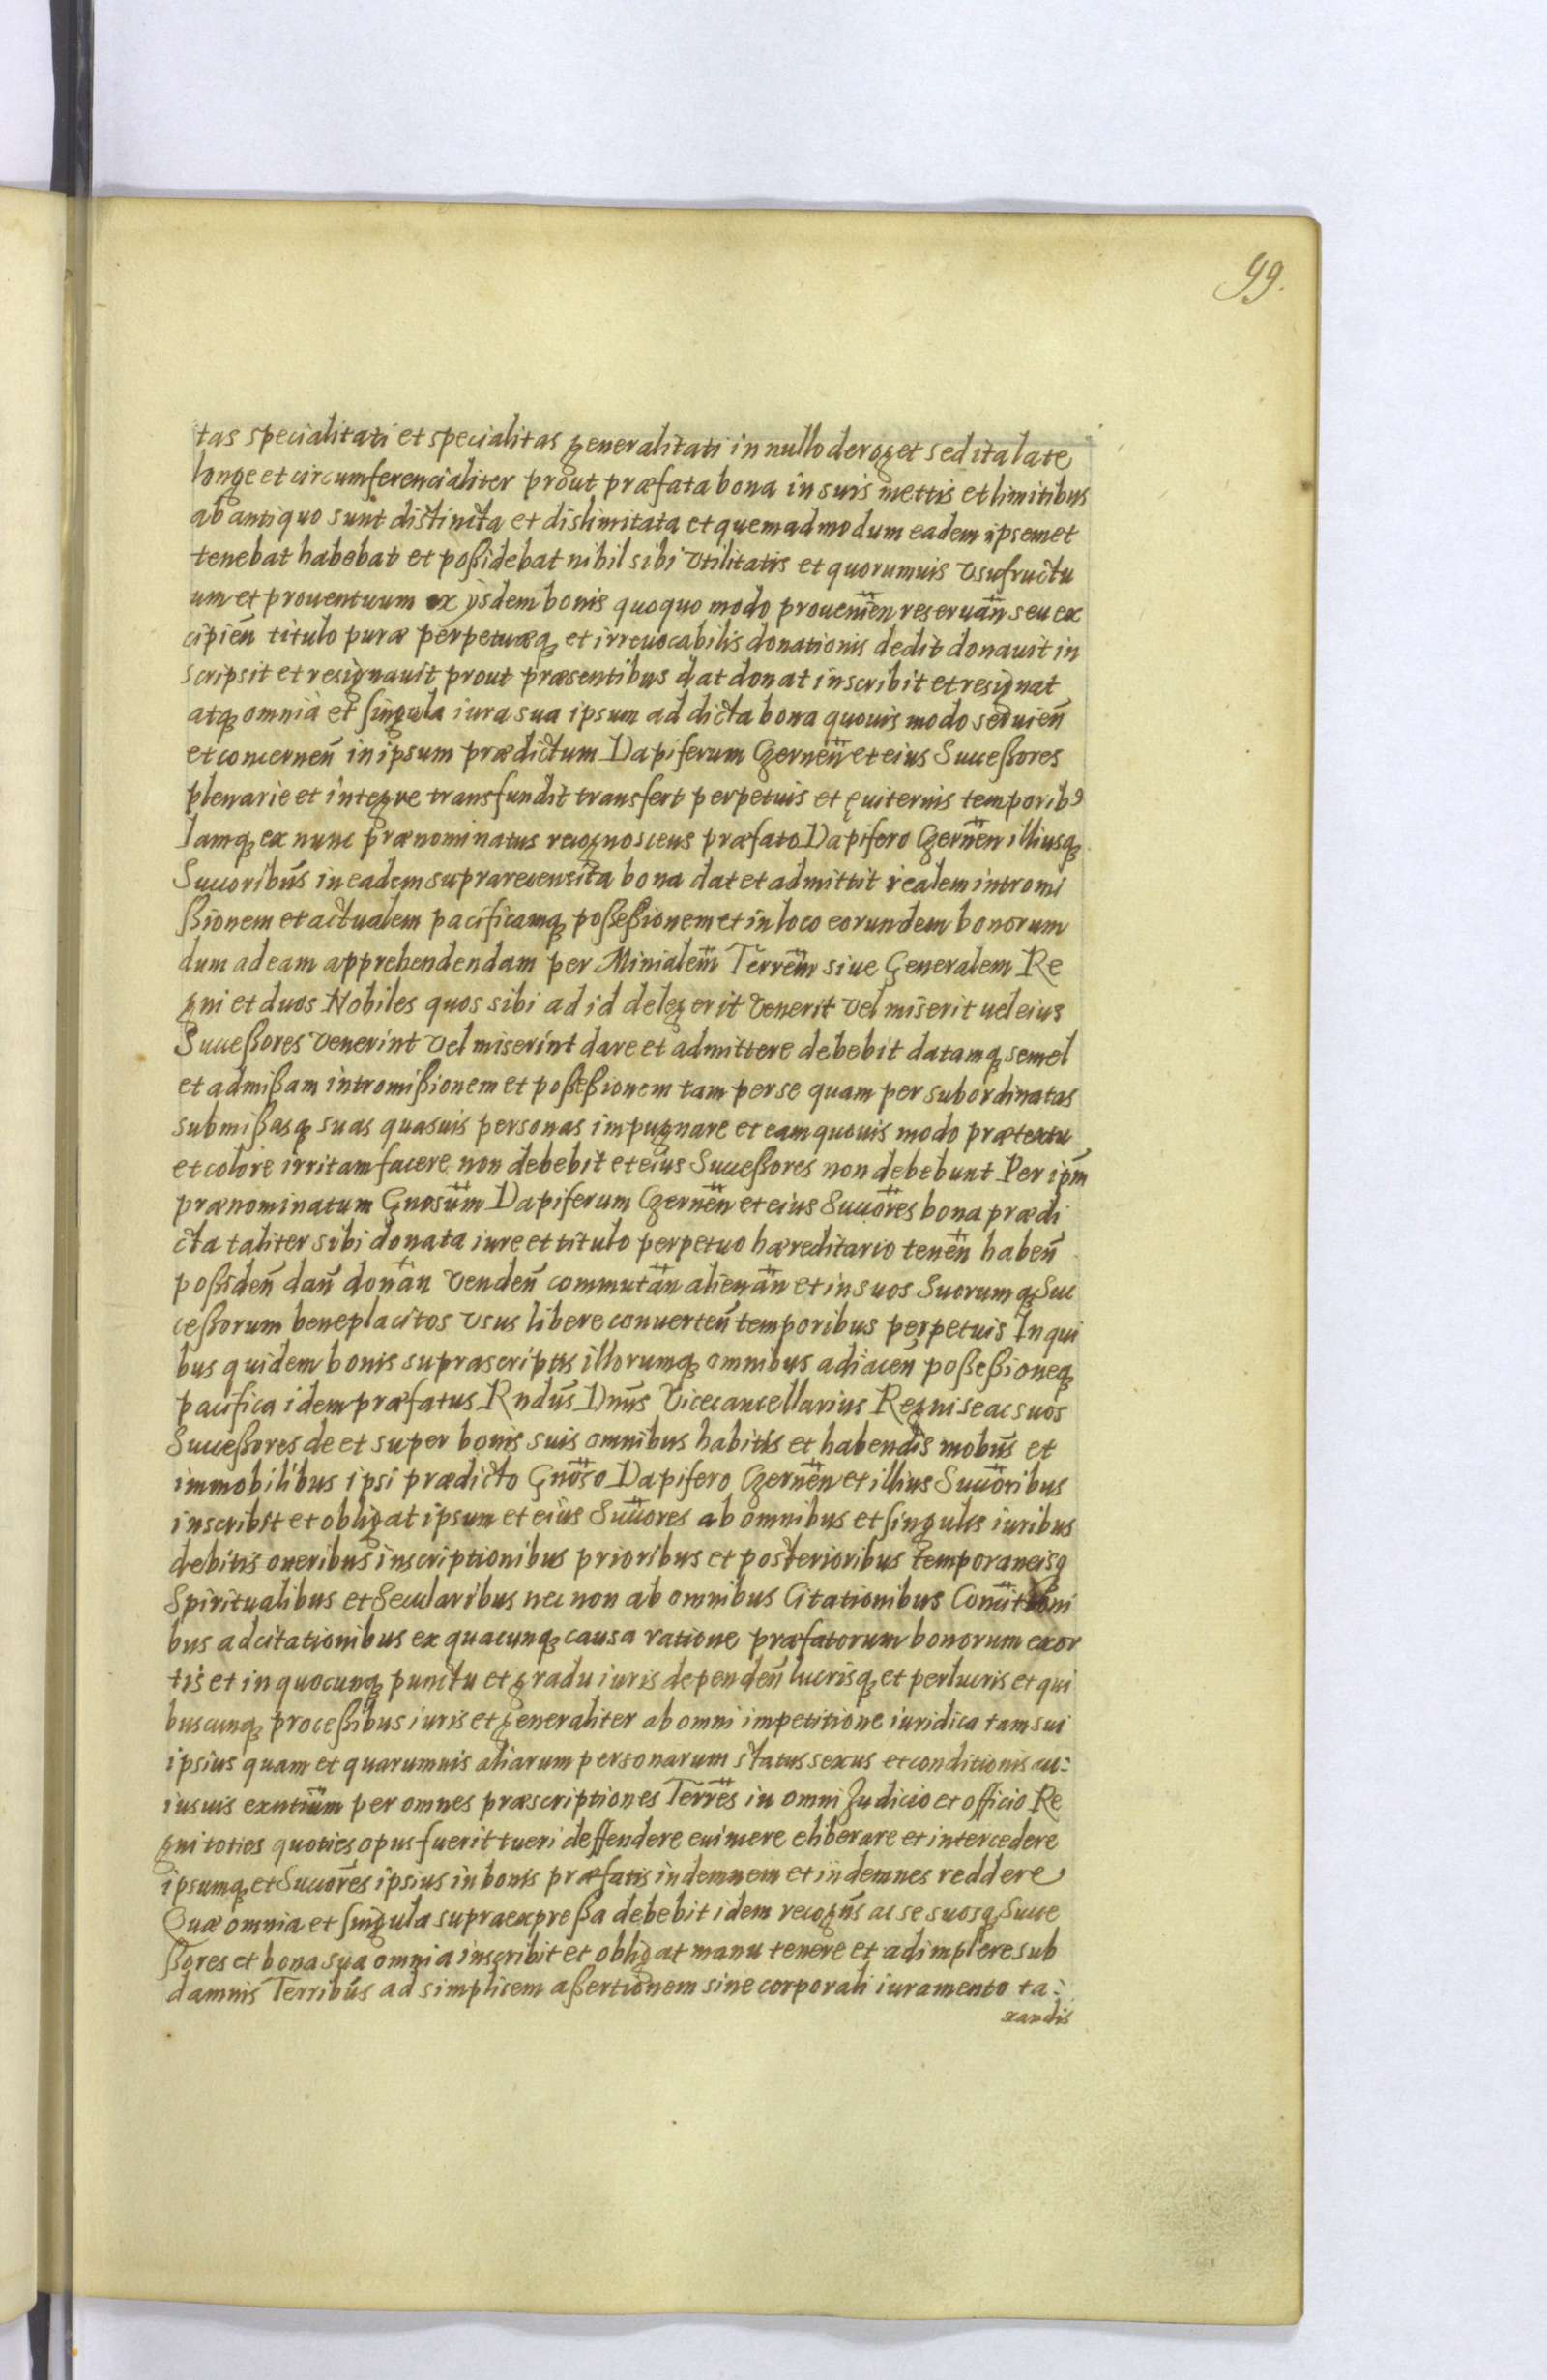 99.
tas specialitati et specialitas generalitati in nullo deroget sed ita late
longe et circumferencialiter prout præfata bona in suis mettis et limitibus
ab antiquo sunt distincta et dislimitata et quemadmodum eadem ipsemet
tenebat habebat et poßidebat nihil sibi vtilitatis et quorumuis vsufructu
um et prouentuum ex ijsdem bonis quoquo modo prouenien̄ reseruan̄ seu ex
cipien̄ titulo puræ perpetuæq́ et irreuocabilis donationis dedit donauit in
scripsit et resignauit prout præsentibus dat donat inscribit et resignat
atq́ omnia et singula iura sua ipsum ad dicta bona quouis modo seruien̄
et concernen̄ in ipsum prædictum Dapiferum Czernen̄ et eius Succeßores
plenarie et integre transfundit transfert perpetuis et ęuiternis temporib9
Iamq́ ex nunc prænominatus recognoscens præfato Dapifero Czernen̄ illiusq́
Succoribūs in eadem suprarecensita bona dat et admittit realem intromi
ßionem et actualem pacificamq́ poßeßionem et in loco eorundem bonorum
dum ad eam apprehendendam per Minialem̄ Terrem̄ siue Generalem Re
gni et duos Nobiles quos sibi ad id delegerit venerit vel miserit uel eius
Succeßores venerint vel miserint dare et admittere debebit datamq́ semel
et admißam intromißionem et poßeßionem tam per se quam per subordinatas
submißasq́ suas quasuis personas impugnare et eam quouis modo prætextu
et colore irritam facere non debebit et eius Succeßores non debebunt Per ipm̄
prænominatum Gnosum̄ Dapiferum Czernen̄ et eius Succōres bona prædi
cta taliter sibi donata iure et titulo perpetuo hæreditario tenen̄ haben̄
poßiden̄ dan̄ donan̄ venden̄ commutan̄ alienan̄ et in suos Suorumq́ Suc
ceßorum beneplacitos vsus libere conuerten̄ temporibus perpetuis In qui
bus quidem bonis suprascriptis illorumq́ omnibus adiacen̄ poßeßioneq́
pacifica idem præfatus Rndūs Dnūs Vicecancellarius Regni se ac suos
Succeßores de et super bonis suis omnibus habitis et habendis mobūs et
immobilibus ipsi prædicto Gnōso Dapifero Czernen̄ et illius Succōribus
inscribit et obligat ipsum et eius Succōres ab omnibus et singulis iuribus
debitis oneribus inscriptionibus prioribus et posterioribus temporaneisq́
Spiritualibus et Secularibus nec non ab omnibus Citationibus
bus adcitationibus ex quacunq́ causa ratione præfatorum bonorum exor
tis et in quocunq́ punctu et gradu iuris dependen̄ lucrisq́ et perlucris et qui
buscunq́ proceßibus iuris et generaliter ab omni impetitione iuridica tam sui
ipsius quam et quarumuis aliarum personarum status sexus et conditionis cu:
iusuis exutium̄ per omnes præscriptiones Terrēs in omni Iudicio et officio Re
gni toties quoties opus fuerit tueri deffendere euimere eliberare et intercedere
ipsumq́ et Succorēs ipsius in bonis præfatis indemnem et indemnes reddere
Quæ omnia et singula supraexpreßa debebit idem recogn̄s ac se suosq́ Succe
ßores et bona sua omnia inscribit et obligat manu tenere et adimplere sub
damnis Terribūs ad simplicem aßertionem sine corporali iuramento ta:
xandis